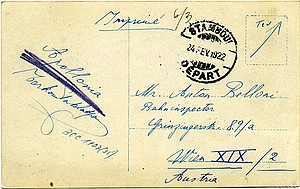 Imprimé
6/3
STAMBOUL
24 FEV. 1922
DÉPART
Apollonia
Mr. Anton Belloni
Bahninspector
Grinzingerstr. 89/a
Wien XIX/2
Austria